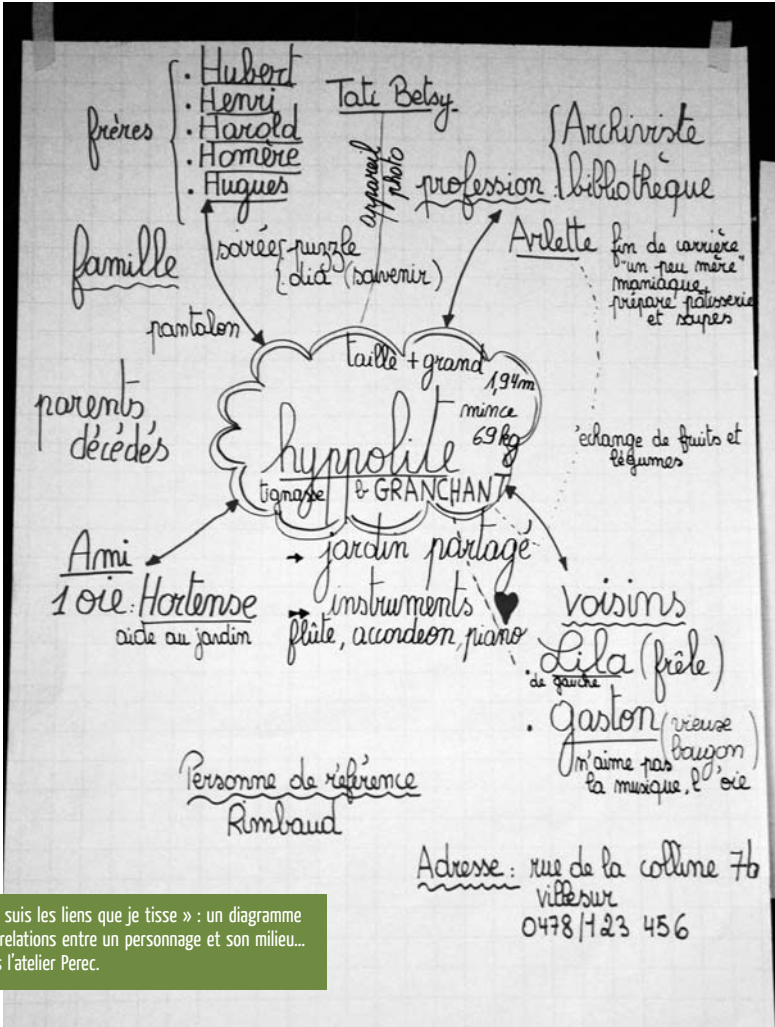 frères
. Hubert
. Henri
. Harold
. Homère
. Hugues
Tati Betsy
appareil photo
profession :
Archiviste
bibliothèque
famille
soirée
puzzle
dia (souvenir)
Arlette
fin de carrière
"un peu mère"
maniaque
prépare pâtisserie
et soupes
pantalon
parents
décédés
taille + grand
1,94m
mince
69 kg
hyppolite
tignasse
GRANCHANT
échange de fruits et
légumes
Ami
1 oie : Hortense
aide au jardin
→ jardin partagé
→ instruments ♥
flûte, accordeon, piano
voisins
. Lila (frêle)
de gauche
. Gaston (vieuse
bougon)
n'aime pas
la musique, l'oie
Personne de référence
Rimbaud
Adresse : rue de la colline 7b
villesur
0478/123 456
suis les liens que je tisse » : un diagramme
relations entre un personnage et son milieu...
l'atelier Perec.